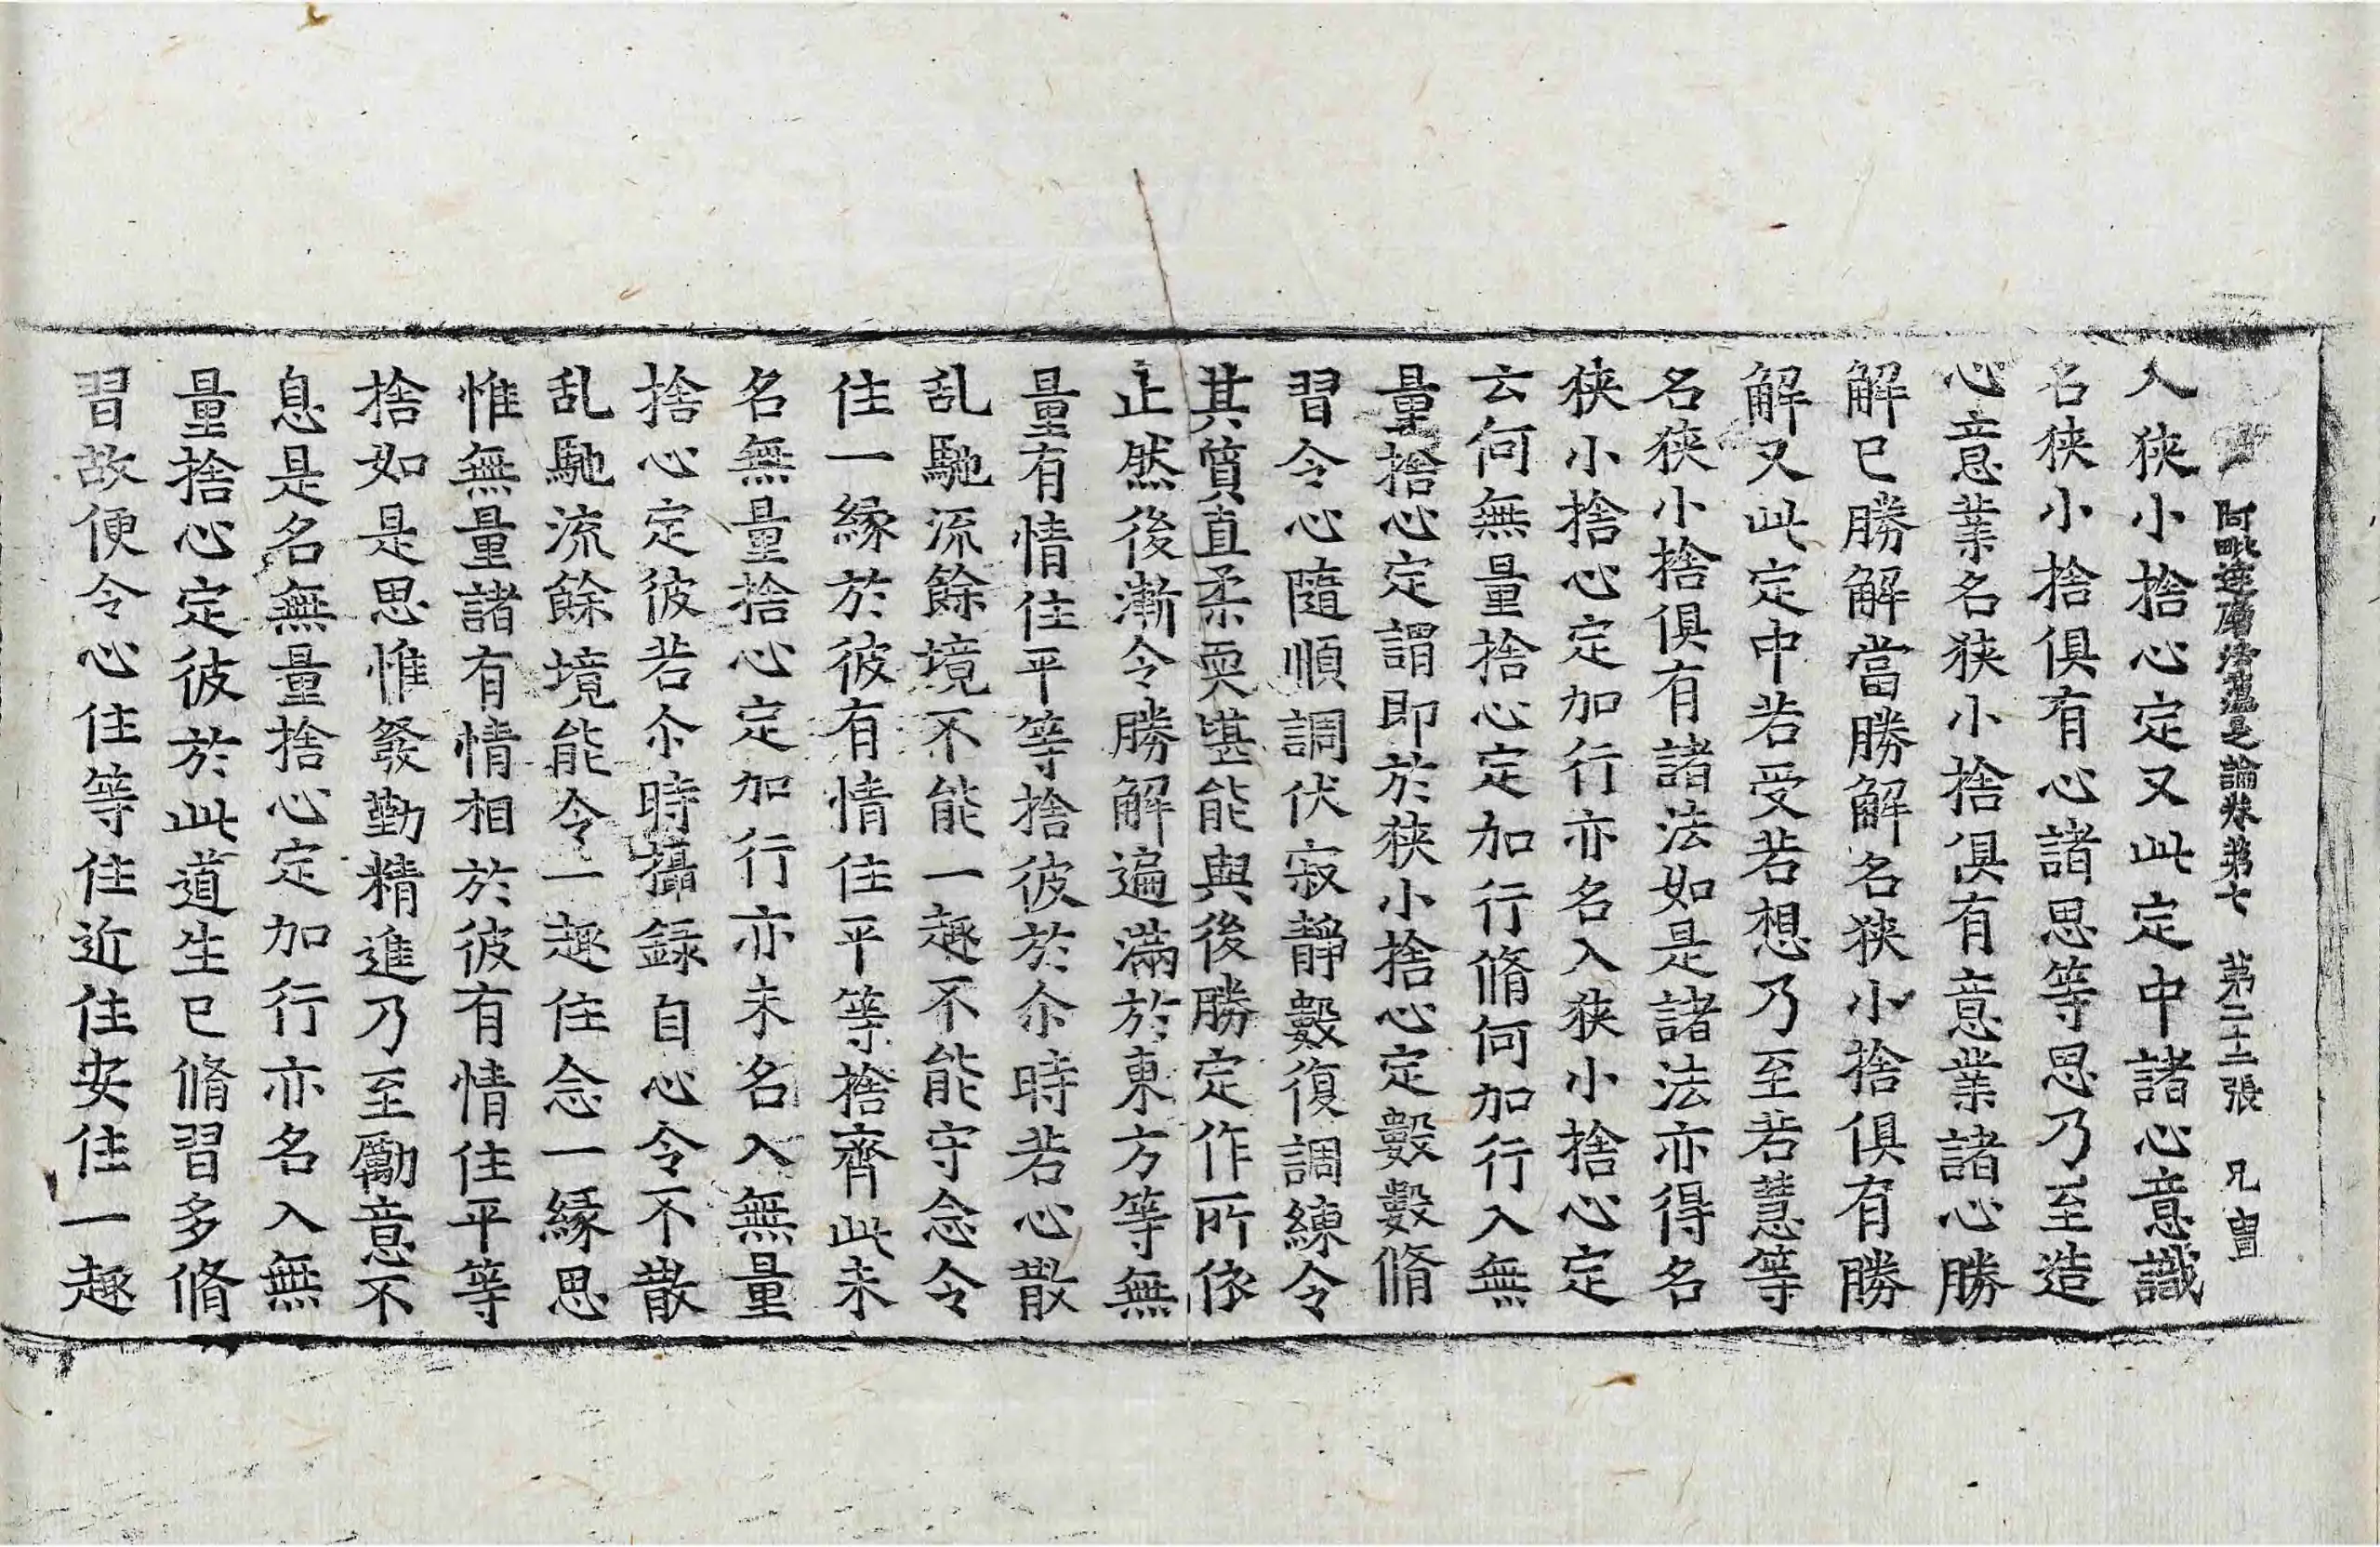 阿毗達磨法蘊足論卷第七 第二十二張 兄
入狹小捨心定又此定中諸心意識
名狹小捨俱有心諸思等思乃至造
心意業名狹小捨俱有意業諸心勝
解已勝解當勝解名狹小捨俱有勝
解又此定中若受若想乃至若慧等
名狹小捨俱有諸法如是諸法亦得名
狹小捨心定加行亦名入狹小捨心定
云何無量捨心定加行脩何加行入無
量捨心定謂即於狹小捨心定數數脩
習令心隨順調伏寂靜數復調練令
其質直柔耎堪能與後勝定作所依
止然後漸令勝解遍滿於東方等無
量有情住平等捨彼於尒時若心散
乱馳流餘境不能一趣不能守念令
住一緣於彼有情住平等捨齊此未
名無量捨心定加行亦未名入無量
捨心定彼若尒時攝録自心令不散
乱馳流餘境能令一趣住念一緣思
惟無量諸有情相於彼有情住平等
捨如是思惟發勤精進乃至勵意不
息是名無量捨心定加行亦名入無
量捨心定彼於此道生已脩習多脩
習故便令心住等住近住安住一趣